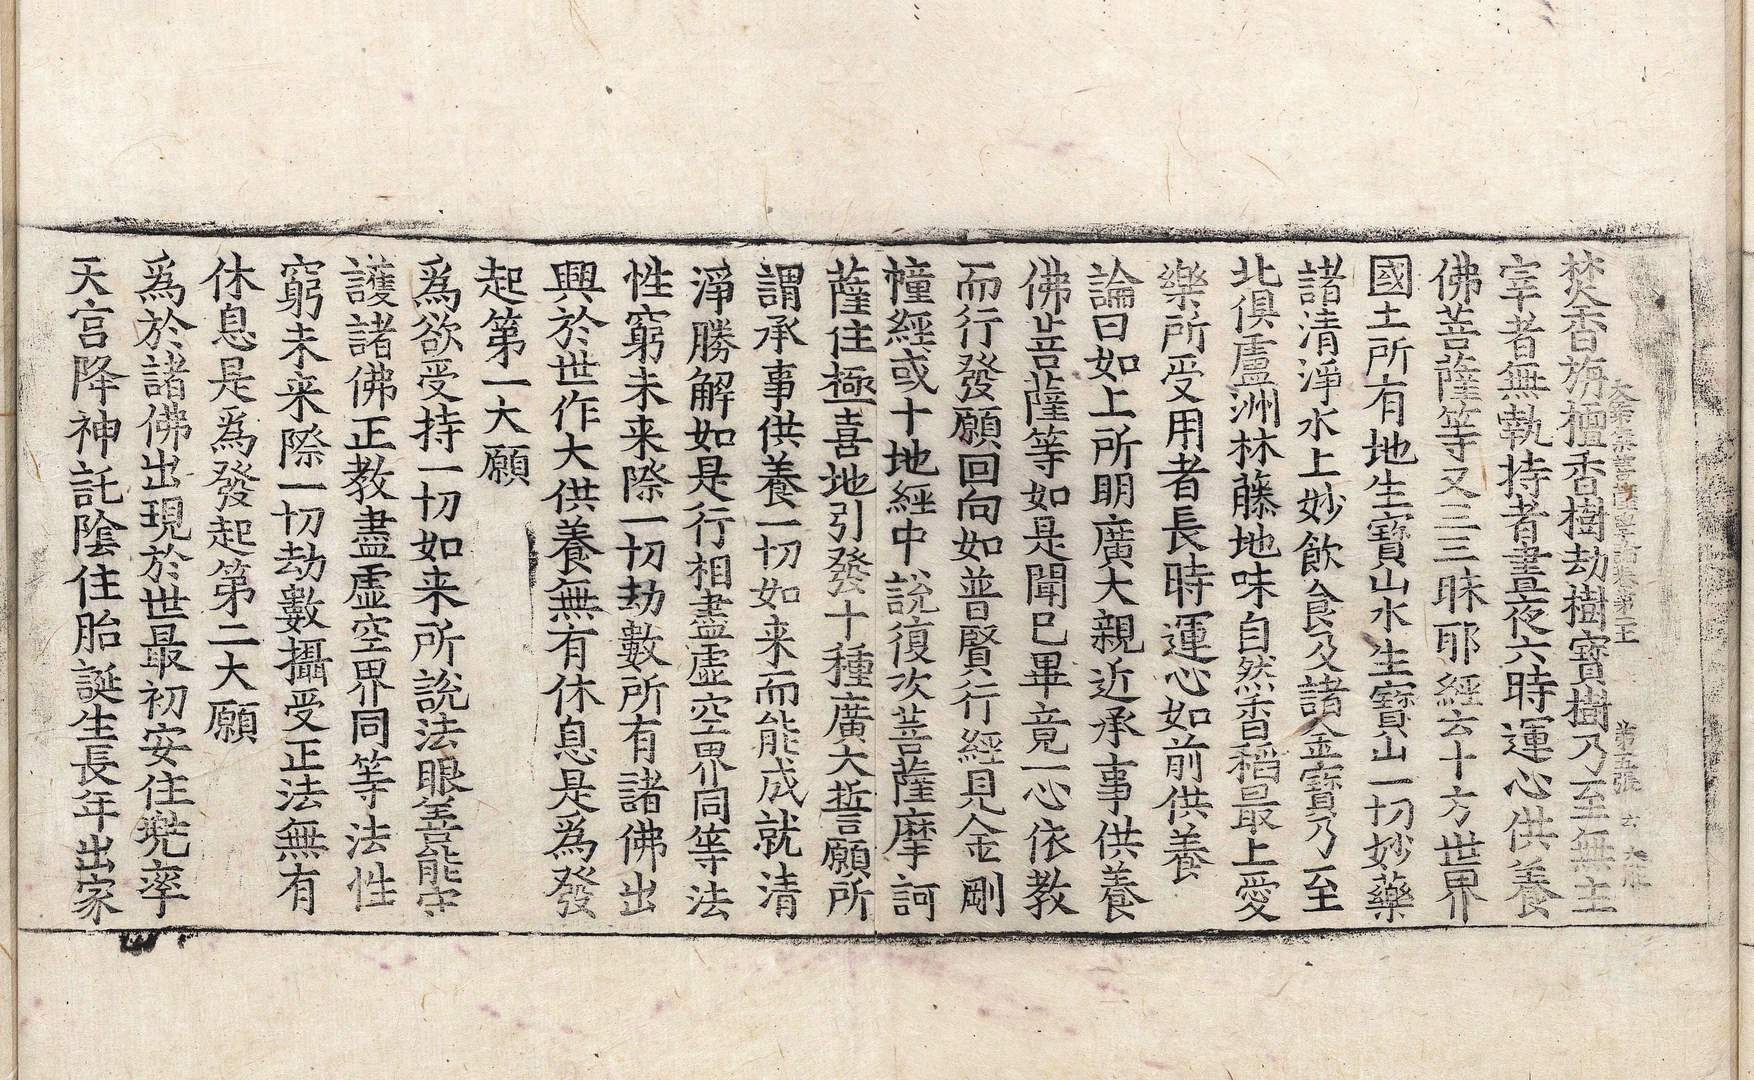 焚香旃檀香樹劫樹寶樹乃至無主
宰者無執持者晝夜六時運心供養
佛菩薩等又三三昧耶經云十方世界
國土所有地生寶山水生寶山一切妙藥
諸清淨水上妙飲食及諸金寶乃至
北俱盧洲林藤地味自然香稻最上愛
樂所受用者長時運心如前供養
論曰如上所明廣大親近承事供養
佛菩薩等如是聞已畢竟一心依教
而行發願回向如普賢行經見金剛
幢經或十地經中說復次菩薩摩訶
薩住極喜地引發十種廣大誓言願所
謂承事供養一切如来而能成就清
淨勝解如是行相盡虛空界同等法
性窮未来際一切劫數所有諸佛出
興於世作大供養無有休息是爲發
起第一大願
爲欲受持一切如来所說法眼善能守
護諸佛正教盡虛空界同等法性
窮未来際一切劫數攝受正法無有
休息是爲發起第二大願
爲於諸佛出現於世最初安住兠率
天宫降神託陰住胎誕生長年出家